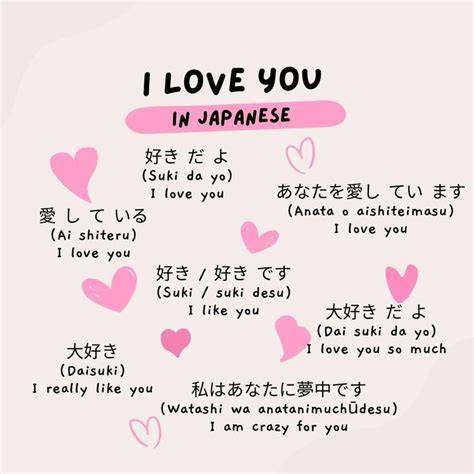 I LOVE YOU
IN JAPANESE
好き だ よ
(Suki da yo)
I love you
あなたを愛し てい ます
(Anata o aishiteimasu)
I love you
愛 し て いる
(Ai shiteru)
I love you
好き / 好き です
(Suki / suki desu)
I like you
大好き だ よ
(Dai suki da yo)
I love you so much
大好き
(Daisuki)
I really like you
私はあなたに夢中です
(Watashi wa anatanimuchŪdesu)
I am crazy for you